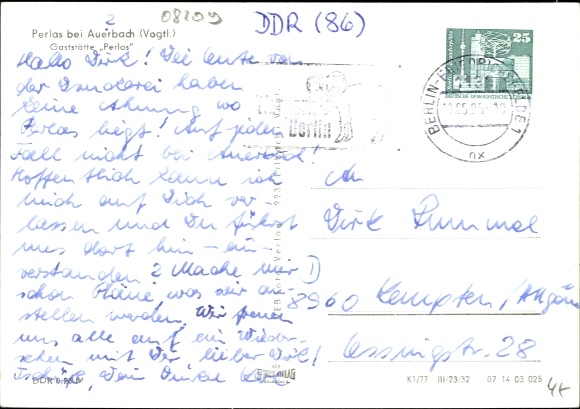 2
08209
DDR (86)
Perlas bei Auerbach (Vogtl.)
Gaststätte „Perlas"
Hallo Dirk! Die Leute von
der Druckerei haben
keine Ahnung wo
Perlas liegt! Auf jeden
Fall nicht bei Auerbach!
Hoffentlich kann ich
mich auf Dich ver
lassen und Du führst
uns dort hin – ein-
verstanden? Mache mir
schon Pläne, was wir an-
stellen werden. Wir freuen
uns alle auf ein Wieder-
sehen mit Dir lieber Dirk!
Tschüß, Dein
DDR 0,20 M
25
DEUTSCHE DEMOKRATISCHE
BERLIN-FRIEDRICHSFELDE 1
nx
Berlin
An
Dirk Rummel
D
8960 Kempten/Allgäu
Lessingstr. 28
K1/77 III/23/32 07 14 03 025
4x